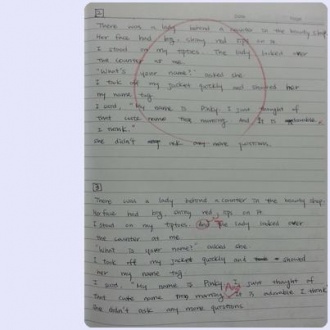 2
There was a lady behind a counter in the beauty shop.
Her face had big, shiny red lips on it.
I stood on my tiptoes. The lady looked over
the counter at me.
"What's your name?" asked she
I took off my jacket quickly and showed her
my name tag.
I said, "My name is Pinky. I just thought of
that cute name this morning. And it is adorable
I think."
She didn't ask any more questions.
3
There was a lady behind a counter in the beauty shop.
face had big shiny red lips on it.
I stood on my tiptoes The lady looked over
the counter at me
"What is your name?" asked she
I took off my jacket quickly and showed
her my name tag.
I said, "My name is Pinky I just thought of
that cute name morning. is adorable I think
She didn't ask my more questions